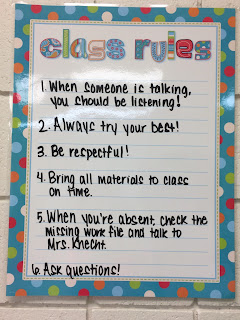 class rules
1. When someone is talking,
you should be listening!
2. Always try your best!
3. Be respectful!
4. Bring all materials to class
on time.
5. When you're absent, check the
missing work file and talk to
Mrs. Knecht.
6. Ask questions!